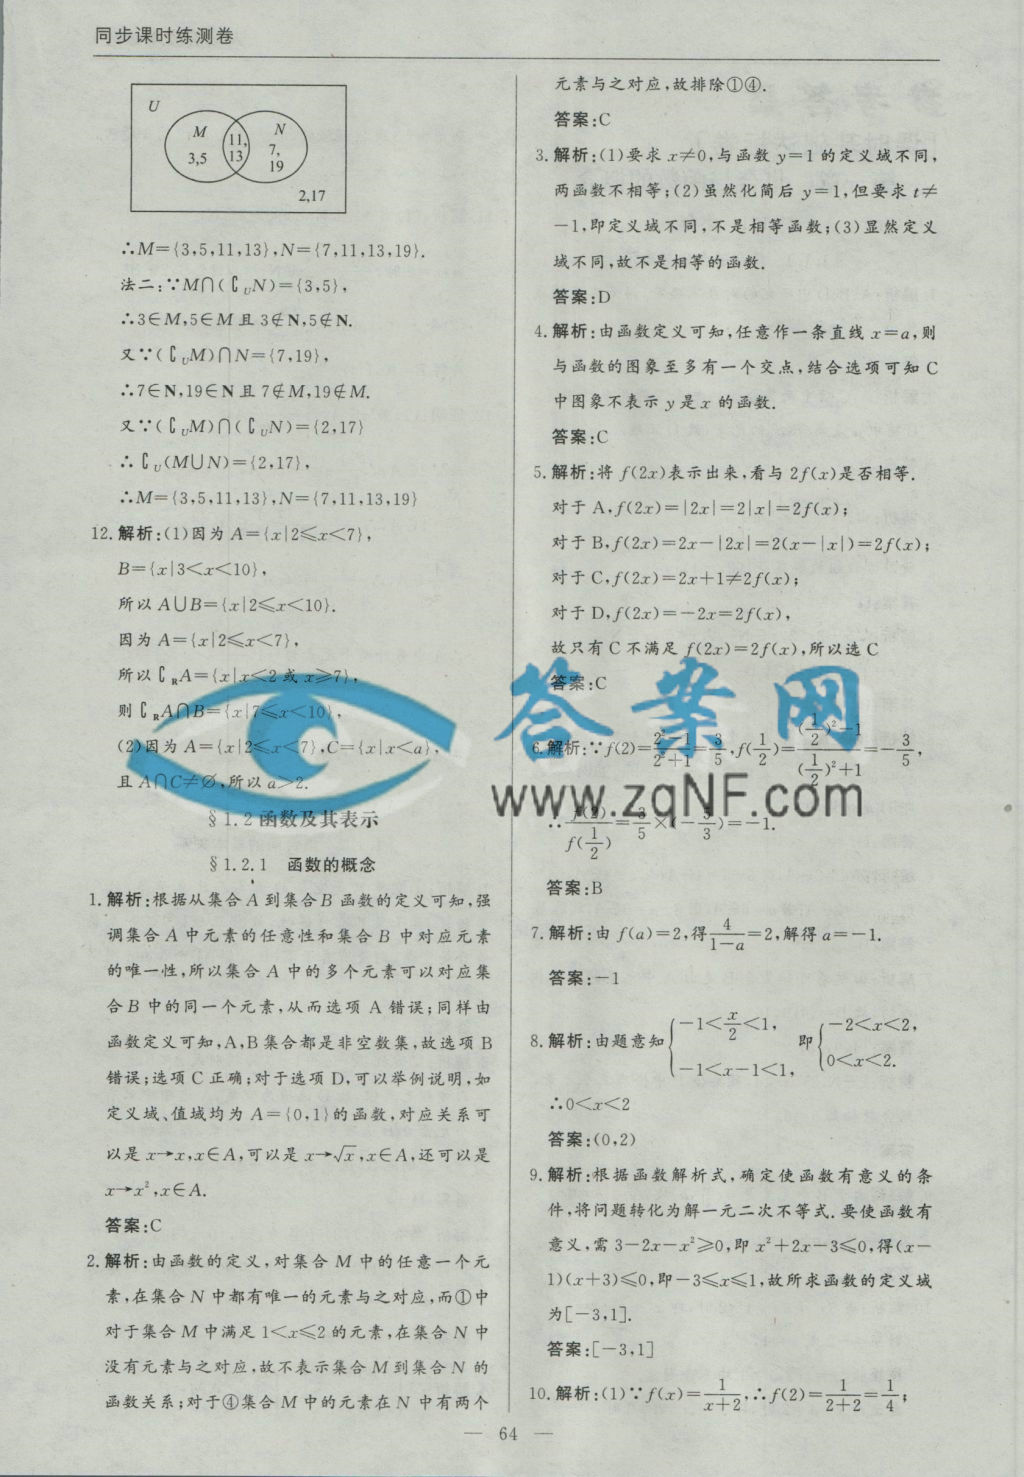 同步课时练测卷
U
M
N
3,5
11,
13
7,
19
2,17
∴M={3,5,11,13},N={7,11,13,19}.
法二:∵M∩(∁UN)={3,5},
∴3∈M,5∈M且3∉N,5∉N.
又∵(∁UM)∩N={7,19},
∴7∈N,19∈N且7∉M,19∉M.
又∵(∁UM)∩(∁UN)={2,17}
∴∁U(M∪N)={2,17},
∴M={3,5,11,13},N={7,11,13,19}
12.解析:(1)因为A={x|2≤x<7},
B={x|3<x<10},
所以A∪B={x|2≤x<10}.
因为A={x|2≤x<7},
所以∁RA={x|x<2或x≥7},
则∁RA∩B={x|7≤x<10},
(2)因为A={x|2≤x<7},C={x|x<a},
且A∩C≠∅,所以a>2.
§1.2函数及其表示
§1.2.1 函数的概念
1.解析:根据从集合A到集合B函数的定义可知,强
调集合A中元素的任意性和集合B中对应元素
的唯一性,所以集合A中的多个元素可以对应集
合B中的同一个元素,从而选项A错误;同样由
函数定义可知,A,B集合都是非空数集,故选项B
错误;选项C正确;对于选项D,可以举例说明,如
定义域、值域均为A={0,1}的函数,对应关系可
以是x→x,x∈A,可以是x→√x,x∈A,还可以是
x→x²,x∈A.
答案:C
2.解析:由函数的定义,对集合M中的任意一个元
素,在集合N中都有唯一的元素与之对应,而①中
对于集合M中满足1<x≤2的元素,在集合N中
没有元素与之对应,故不表示集合M到集合N的
函数关系;对于④集合M中的元素在N中有两个
元素与之对应,故排除①④.
答案:C
3.解析:(1)要求x≠0,与函数y=1的定义域不同,
两函数不相等;(2)虽然化简后y=1,但要求t≠
-1,即定义域不同,不是相等函数;(3)显然定义
域不同,故不是相等的函数.
答案:D
4.解析:由函数定义可知,任意作一条直线x=a,则
与函数的图象至多有一个交点,结合选项可知C
中图象不表示y是x的函数.
答案:C
5.解析:将f(2x)表示出来,看与2f(x)是否相等.
对于A,f(2x)=|2x|=2|x|=2f(x);
对于B,f(2x)=2x-|2x|=2(x-|x|)=2f(x);
对于C,f(2x)=2x+1≠2f(x);
对于D,f(2x)=-2x=2f(x),
故只有C不满足f(2x)=2f(x),所以选C
答案:C
答案网
6.解析:∵f(2)=(2²-1)/(2²+1)=3/5,f(1/2)=((1/2)²-1)/((1/2)²+1)=-3/5,
www.zqNF.com
∴f(2)/f(1/2)=3/5×(-5/3)=-1.
答案:B
7.解析:由f(a)=2,得4/(1-a)=2,解得a=-1.
答案:-1
8.解析:由题意知{-1<x/2<1, -1<x-1<1, 即{-2<x<2, 0<x<2.
∴0<x<2
答案:(0,2)
9.解析:根据函数解析式,确定使函数有意义的条
件,将问题转化为解一元二次不等式.要使函数有
意义,需3-2x-x²≥0,即x²+2x-3≤0,得(x-
1)(x+3)≤0,即-3≤x≤1,故所求函数的定义域
为[-3,1].
答案:[-3,1]
10.解析:(1)∵f(x)=1/(x+2),∴f(2)=1/(2+2)=1/4;
— 64 —